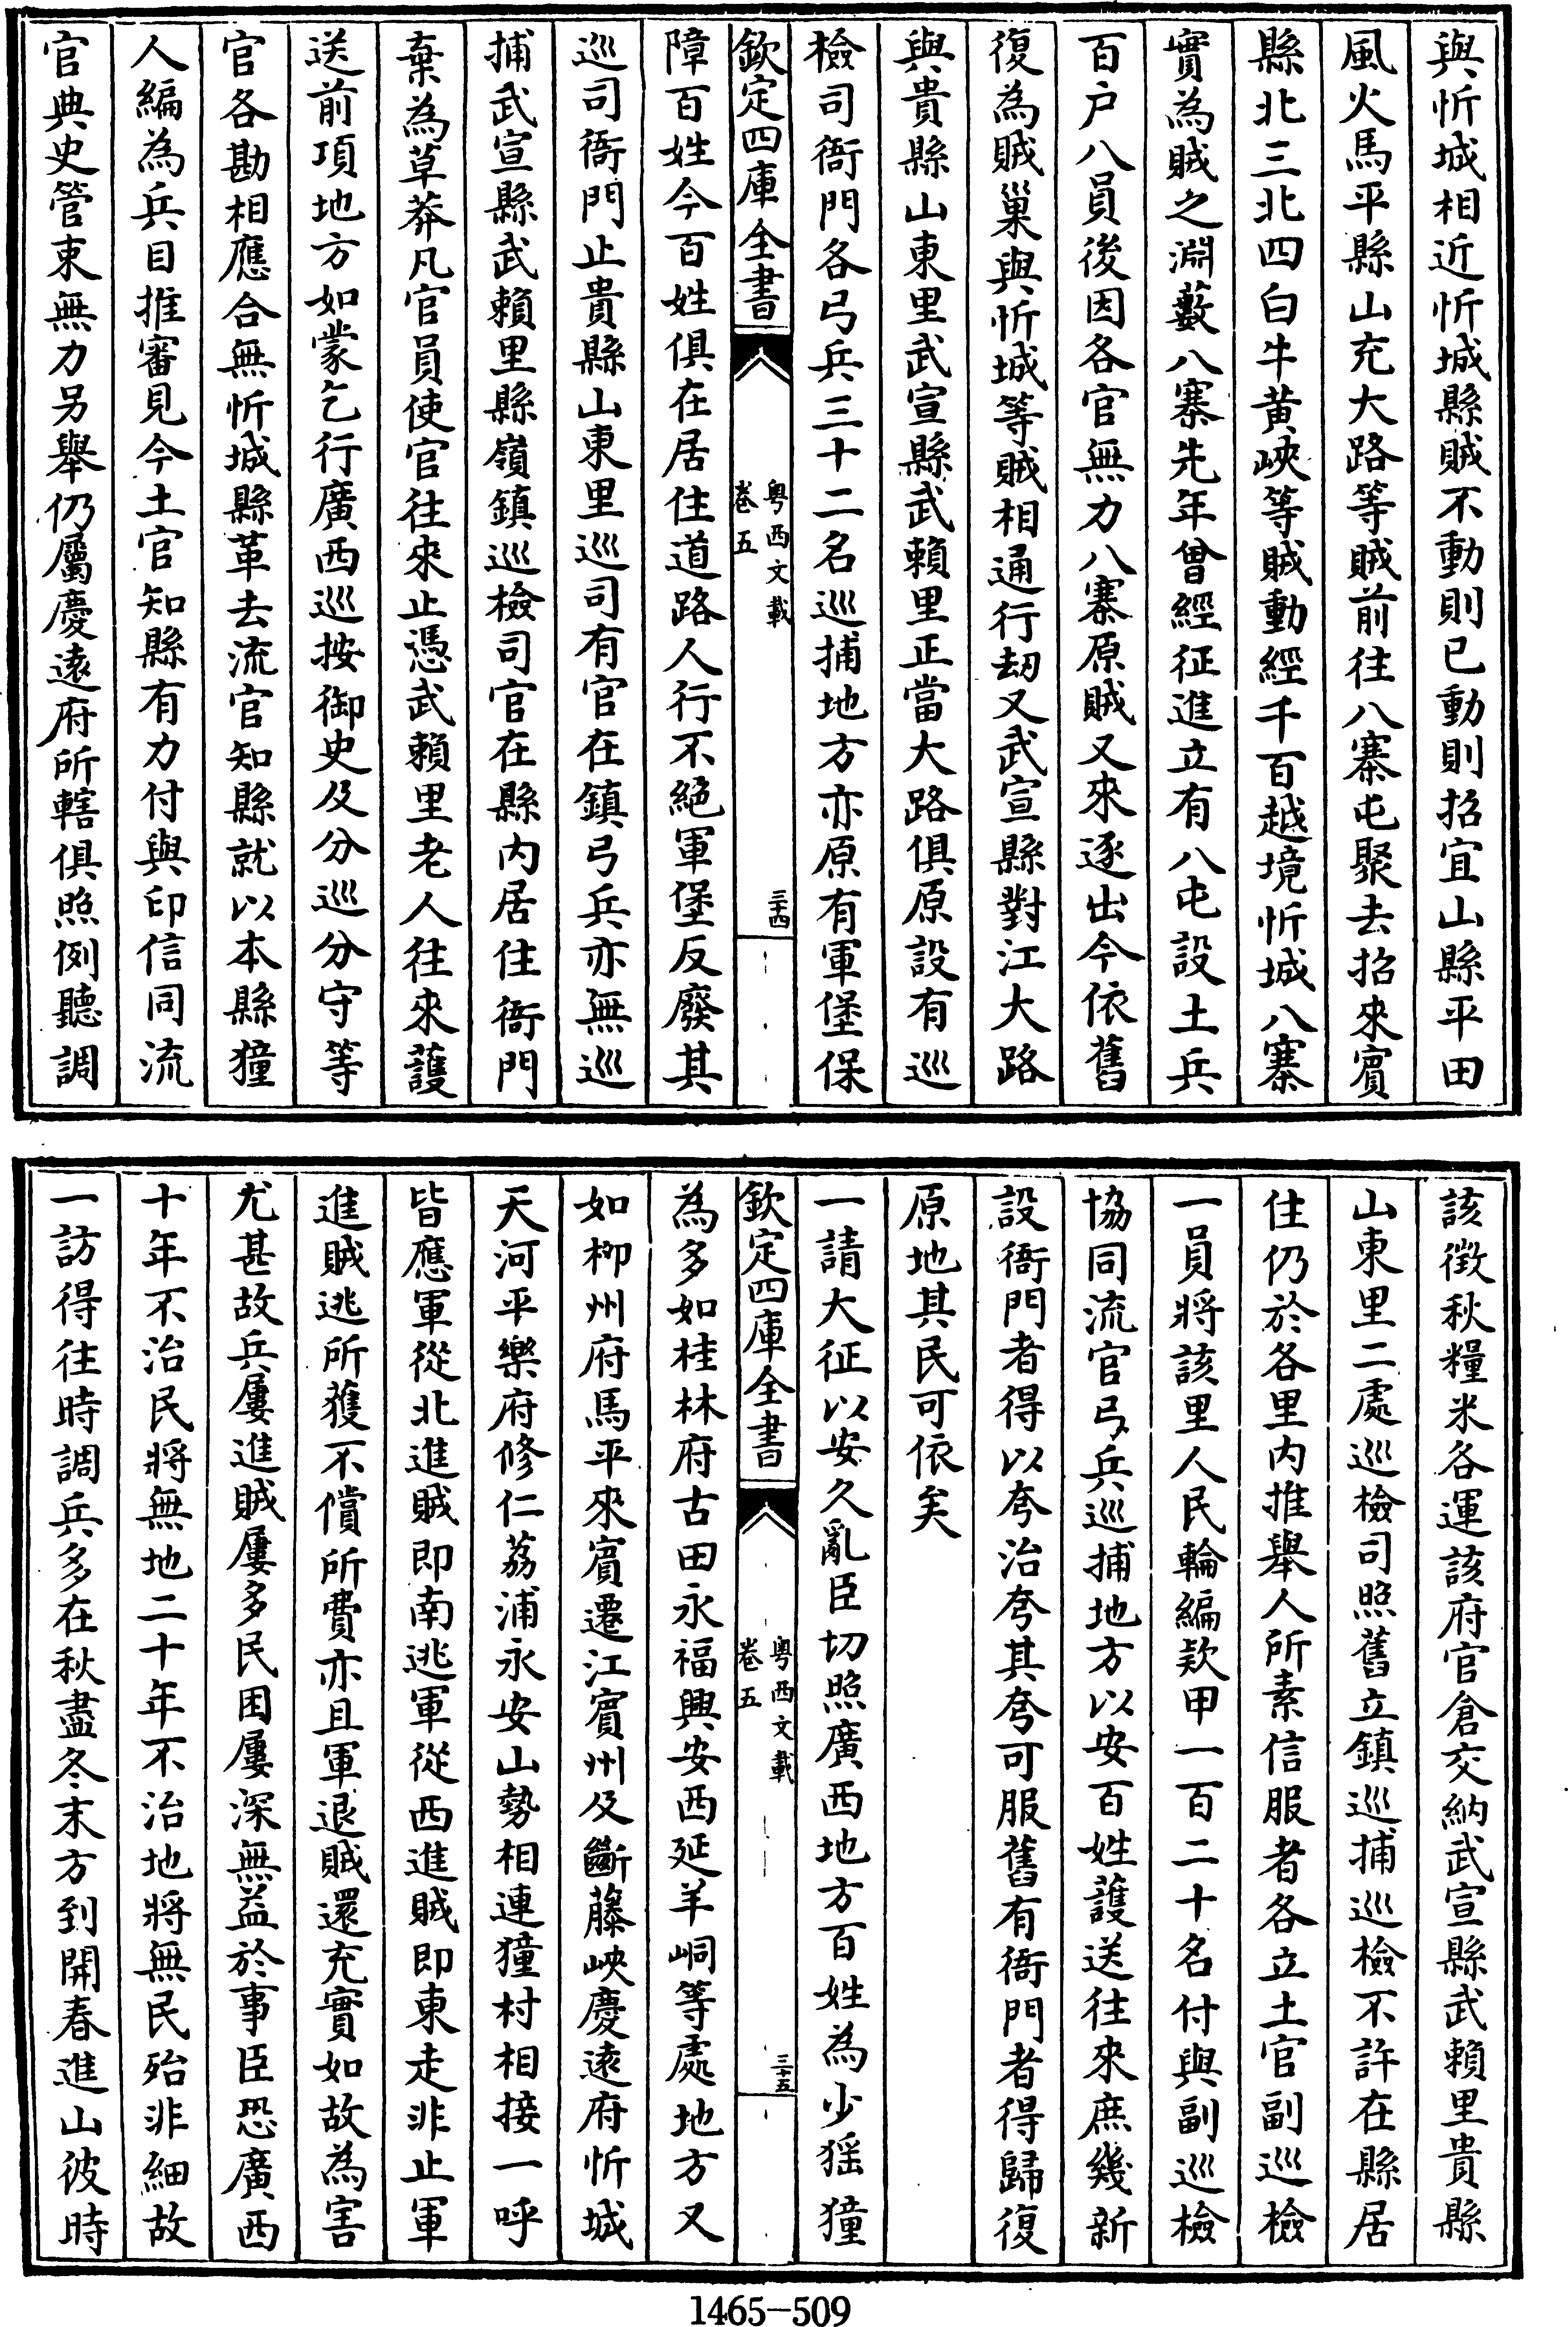 與忻城相近忻城縣賊不動則已動則招宜山縣平田
風火馬平縣山充大路等賊前往八寨屯聚去招來賓
縣北三北四白牛黄峽等賊動經千百越境忻城八寨
實為賊之淵藪八寨先年曾經征進立有八屯設土兵
百户八員後因各官無力八寨原賊又來逐出今依舊
復為賊巢與忻城等賊相通行刼又武宣縣對江大路
與貴縣山東里武宣縣武賴里正當大路俱原設有巡
檢司衙門各弓兵三十二名巡捕地方亦原有軍堡保
欽定四庫全書
粤西文載
卷五
三十四
障百姓今百姓俱在居住道路人行不絕軍堡反廢其
巡司衙門止貴縣山東里巡司有官在鎮弓兵亦無巡
捕武宣縣武賴里縣嶺鎮巡檢司官在縣内居住衙門
棄為草莽凡官員使官往來止憑武賴里老人往來護
送前項地方如蒙乞行廣西巡按御史及分巡分守等
官各勘相應合無忻城縣革去流官知縣就以本縣獞
人編為兵目推審見今土官知縣有力付與印信同流
官典史管束無力另舉仍屬慶遠府所轄俱照例聽調
該徴秋糧米各運該府官倉交納武宣縣武賴里貴縣
山東里二處巡檢司照舊立鎮巡捕巡檢不許在縣居
住仍於各里内推舉人所素信服者各立土官副巡檢
一員將該里人民輪編款甲一百二十名付與副巡檢
協同流官弓兵巡捕地方以安百姓護送往來庶幾新
設衙門者得以夸治夸其夸可服舊有衙門者得歸復
原地其民可依矣
一請大征以安久亂臣切照廣西地方百姓為少猺獞
欽定四庫全書
粤西文載
卷五
三十五
為多如桂林府古田永福興安西延羊峒等處地方又
如柳州府馬平來賓遷江賓州及斷藤峽慶遠府忻城
天河平樂府修仁荔浦永安山勢相連獞村相接一呼
皆應軍從北進賊即南逃軍從西進賊即東走非止軍
進賊逃所獲不償所費亦且軍退賊還充實如故為害
尤甚故兵屢進賊屢多民困屢深無益於事臣恐廣西
十年不治民將無地二十年不治地將無民殆非細故
一訪得往時調兵多在秋盡冬末方到開春進山彼時
1465-509